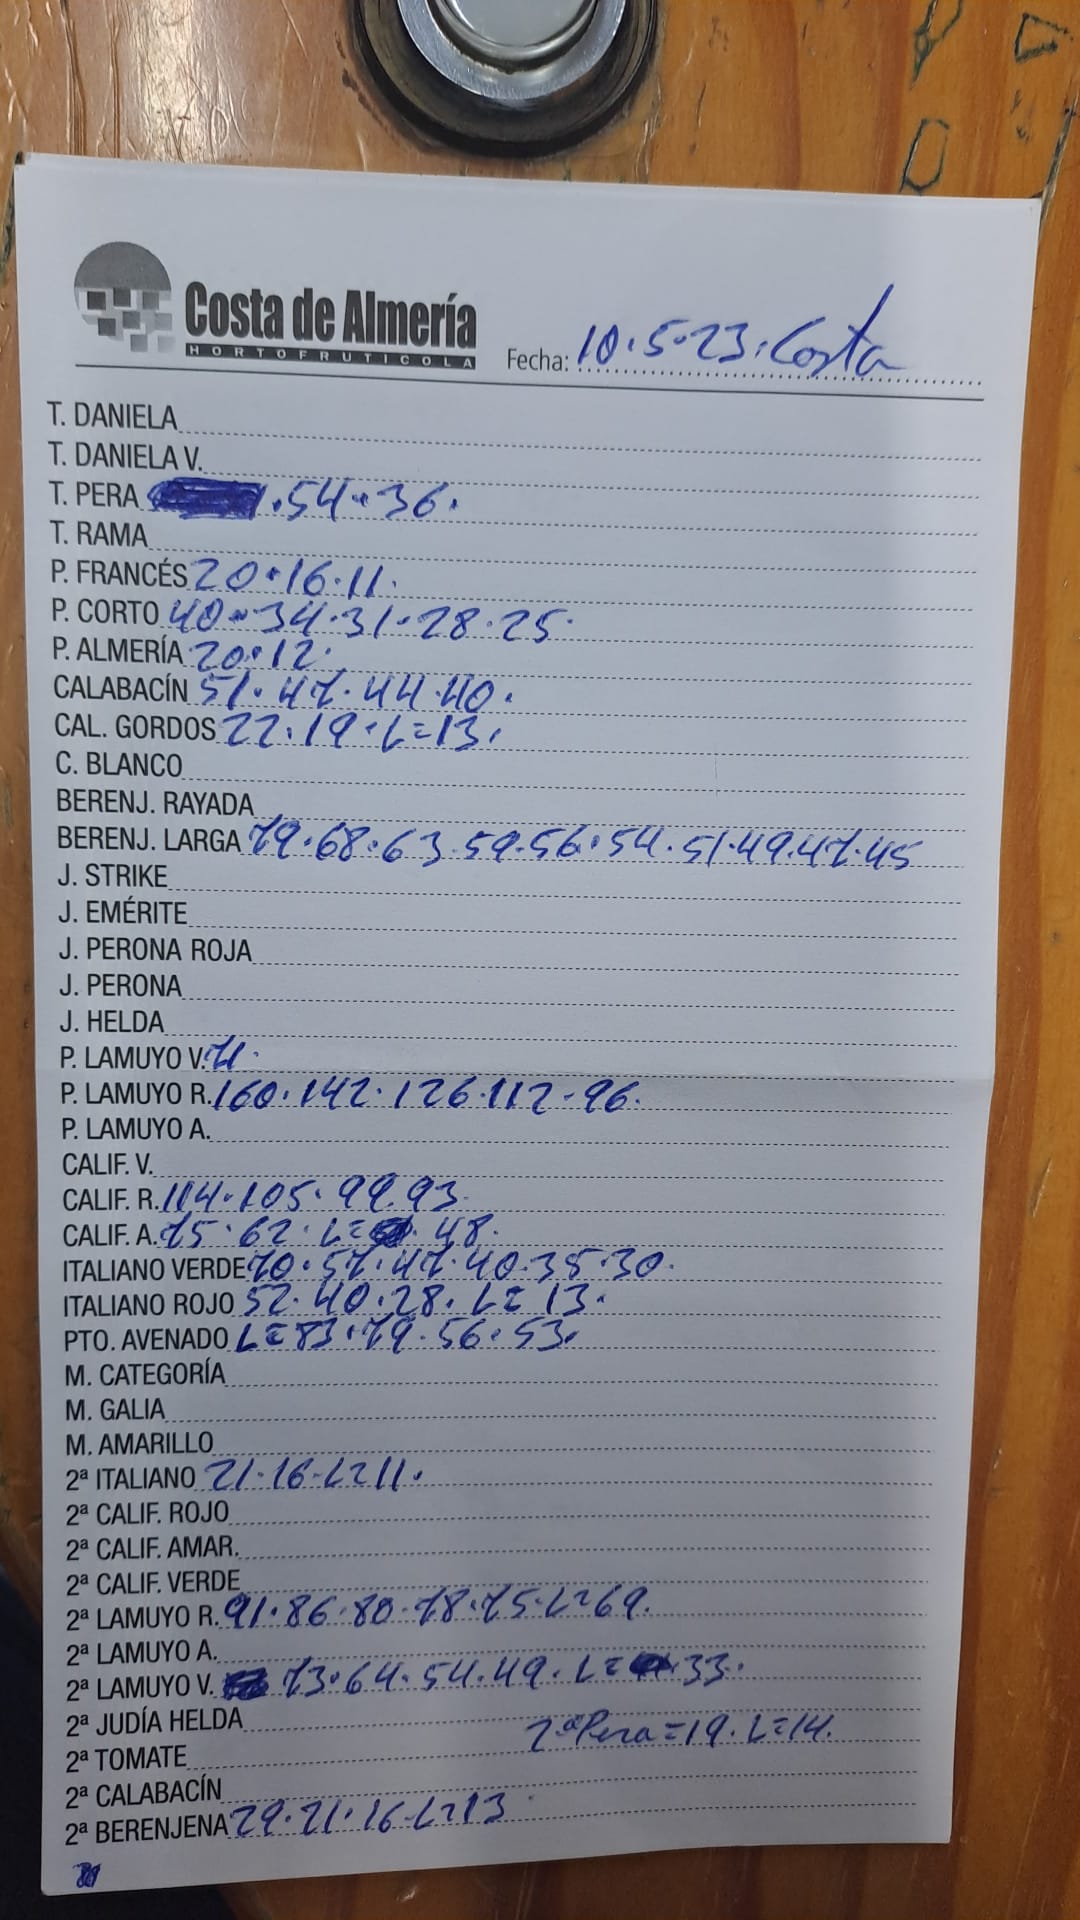 Costa de Almería
HORTOFRUTICOLA
Fecha: 10.5.23. Costa
T. DANIELA
T. DANIELA V.
T. PERA .54.36.
T. RAMA
P. FRANCÉS 20.16.11.
P. CORTO 40.34.31.28.25.
P. ALMERÍA 20.12.
CALABACÍN 51.47.44.40.
CAL. GORDOS 22.19.L=13.
C. BLANCO
BERENJ. RAYADA
BERENJ. LARGA 79.68.63.59.56.54.51.49.47.45
J. STRIKE
J. EMÉRITE
J. PERONA ROJA
J. PERONA
J. HELDA
P. LAMUYO V. 71.
P. LAMUYO R. 160.142.126.112.96.
P. LAMUYO A.
CALIF. V.
CALIF. R. 114.105.99.93.
CALIF. A. 75.62.L= 48.
ITALIANO VERDE 70.57.47.40.35.30.
ITALIANO ROJO 52.40.28.L=13.
PTO. AVENADO L=83.79.56.53.
M. CATEGORÍA
M. GALIA
M. AMARILLO
2ª ITALIANO 21.16.L=11.
2ª CALIF. ROJO
2ª CALIF. AMAR.
2ª CALIF. VERDE
2ª LAMUYO R. 91.86.80.78.75.L=69.
2ª LAMUYO A.
2ª LAMUYO V. 73.64.54.49.L= .33.
2ª JUDÍA HELDA
2ª Pera=19.L=14.
2ª TOMATE
2ª CALABACÍN
2ª BERENJENA 29.21.16.L=13